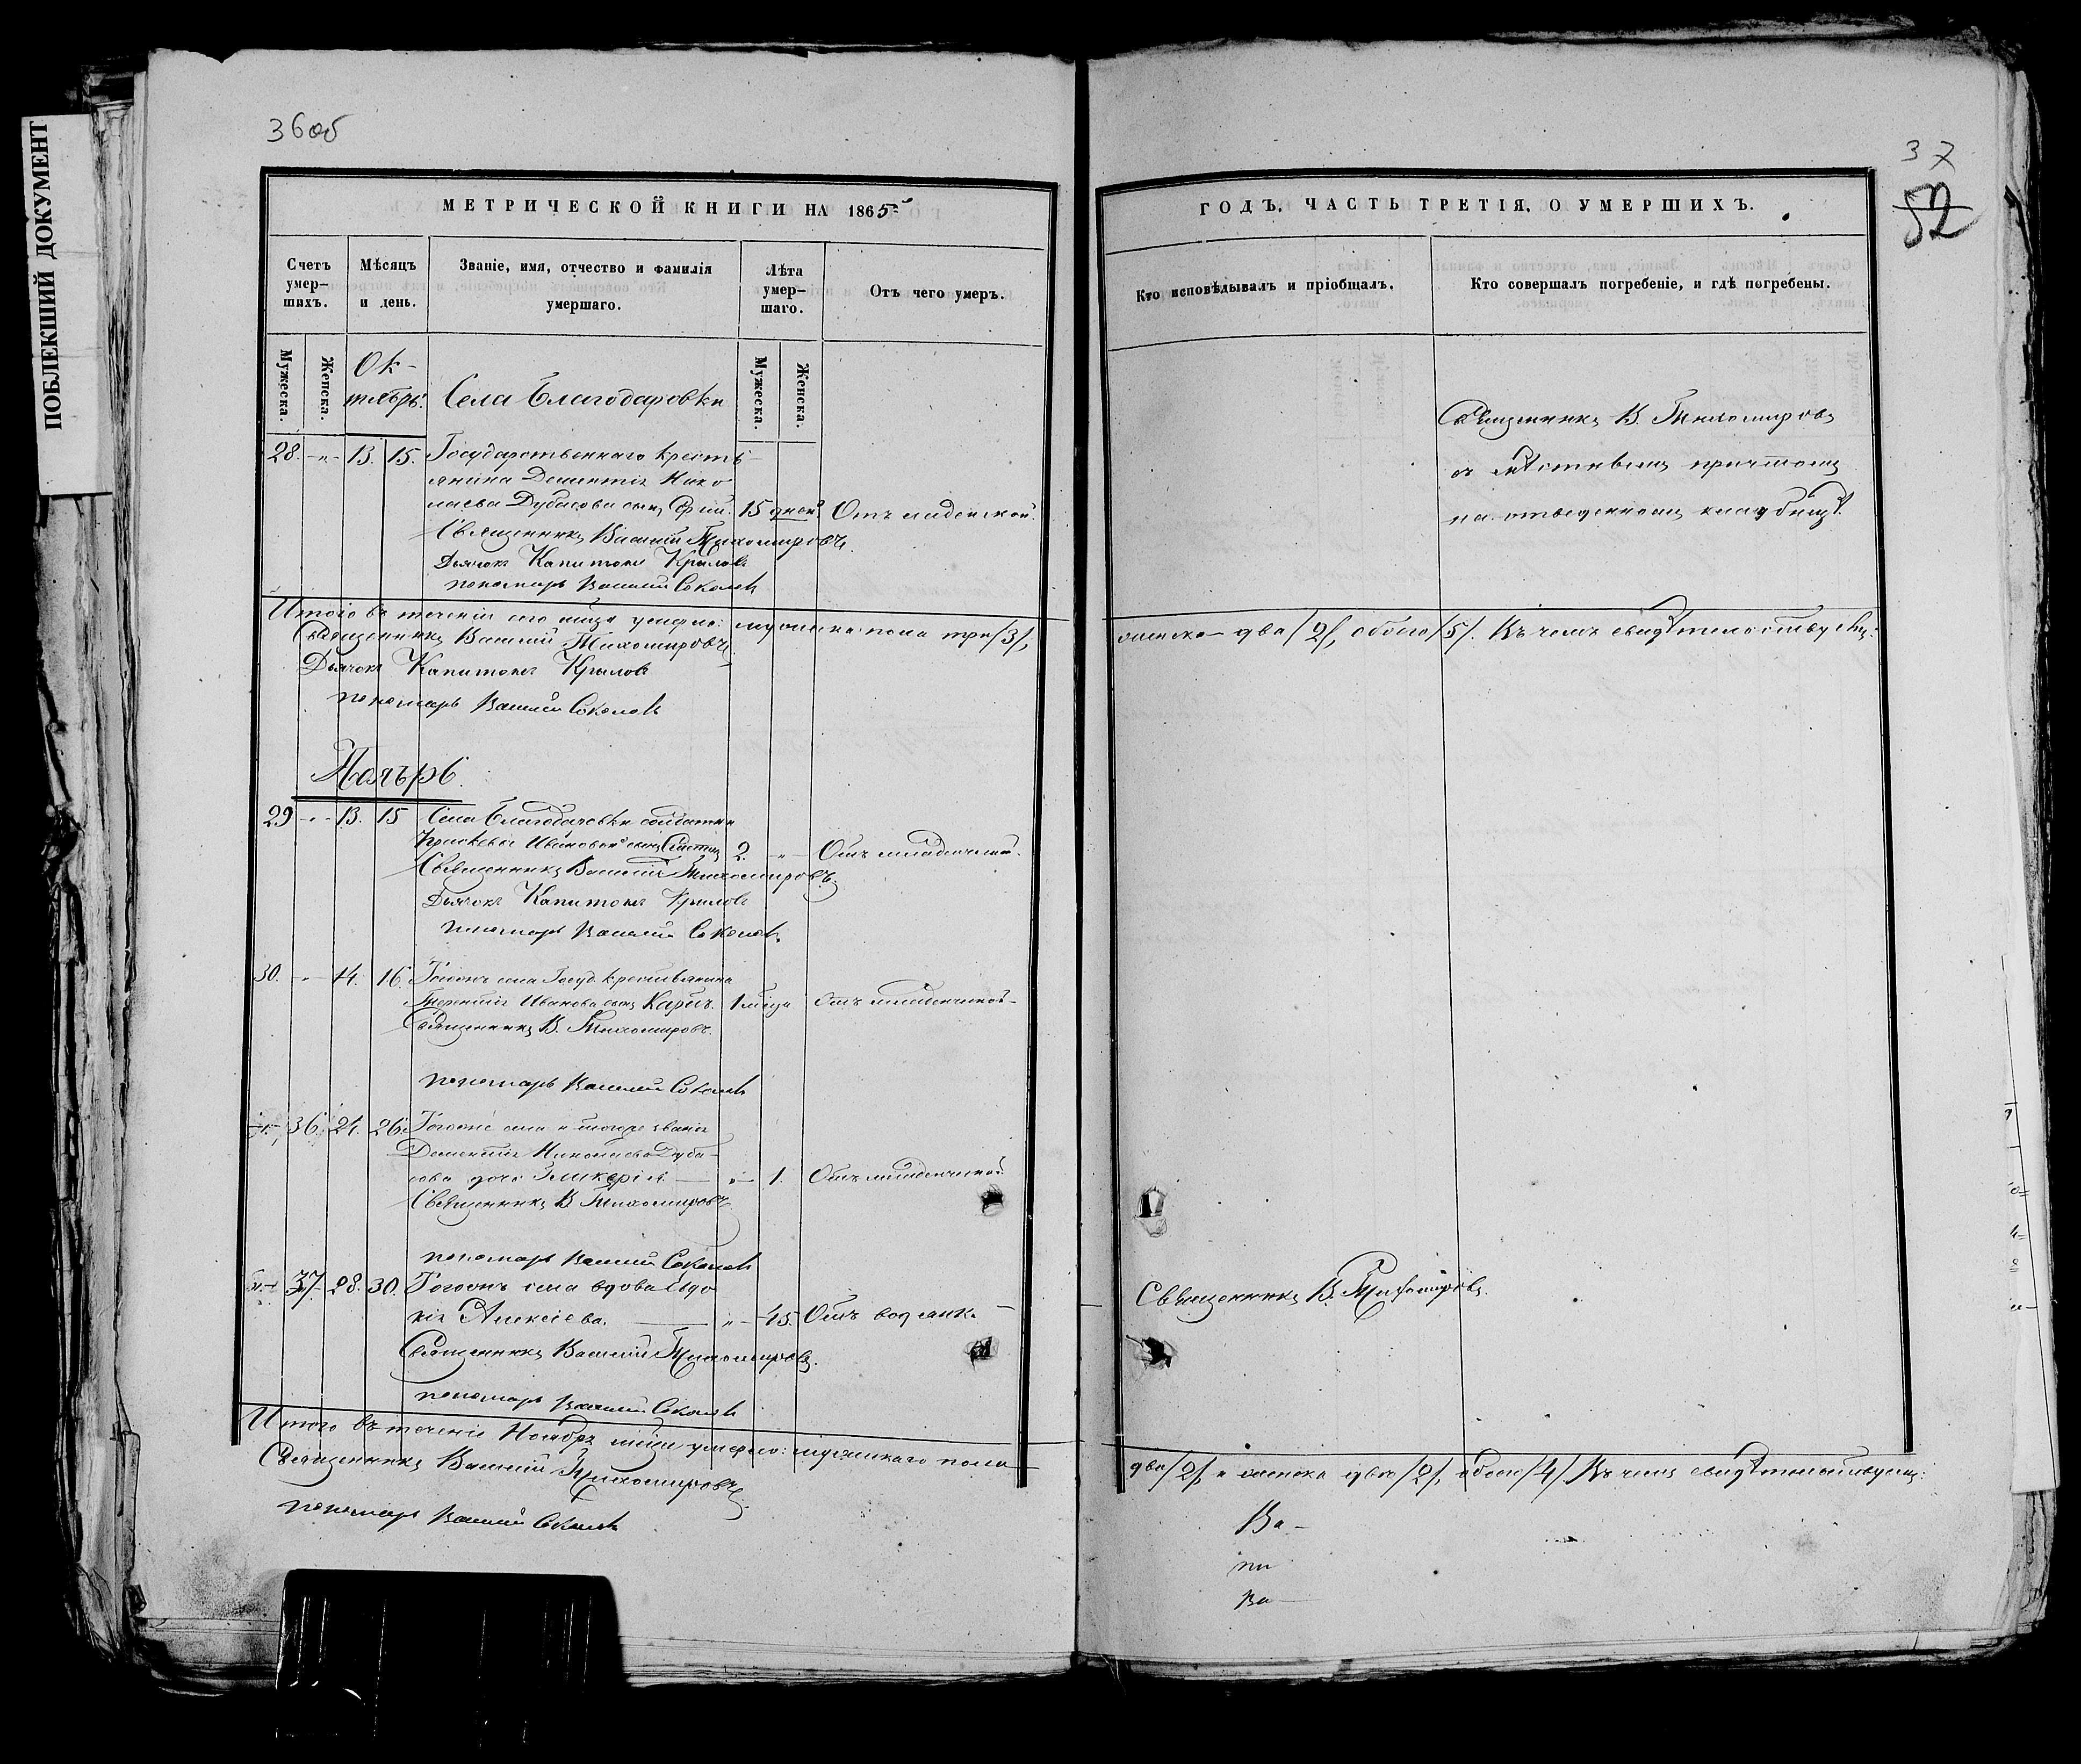 ПОБЛЕКШИЙ ДОКУМЕНТ
36об
МЕТРИЧЕСКОЙ КНИГИ НА 1865
Счетъ умер-шихъ.
Мѣсяцъ и день.
Званіе, имя, отчество и фамилія умершаго.
Лѣта умер-шаго.
Отъ чего умеръ.
Мужеска.
Женска.
Мужеска.
Женска.
Ок-
тябрь.
Села Благодаровки
28. -"- 13. 15. Государственнаго кресть-
янина Дементія Нико
лаева Дубасова сынъ 15 дней. Отъ младенской.
Священникъ Василій Тихомировъ.
Дьячокъ Капитонъ Крыловъ
пономарь Василій Соколовъ
Итого въ теченіи сего мѣсяца умерло: мужеска пола три /3/,
Священникъ Василій Тихомировъ
Дьячокъ Капитонъ Крыловъ
пономарь Василій Соколовъ
Ноябрь.
29 -"- 13. 15 Села Благодаровки солдатки
Ивановой сынъ 2. -"- Отъ младенческой.
Священникъ Василій Тихомировъ.
Дьячокъ Капитонъ Крыловъ
пономарь Василій Соколовъ
30. -"- 14. 16. Тогожъ села Госуд. крестьянина
Терентія Иванова сынъ Карпъ. 1 мѣсяца отъ младенческой
Священникъ В. Тихомировъ.
пономарь Василій Соколовъ
-"- 36. 24. 26. Тогоже села и тогоже званія
Дементія Николаева Дуба-
сова дочь Гликерія -"- 1. Отъ младенческой
Священникъ В Тихомировъ
пономарь Василій Соколовъ
-"- 37. 28. 30. Тогожъ села вдова Евдо
кія Алексіева. -"- 45. Отъ водянк.
Священникъ Василій Тихомировъ.
пономарь Василій Соколовъ
Итого въ теченіе Ноября мѣсяца умерло: мужескаго пола
Священникъ Василій Тихомировъ
пономарь Василій Соколовъ
37
52
ГОДЪ, ЧАСТЬ ТРЕТІЯ, О УМЕРШИХЪ.
Кто исповѣдывалъ и пріобщалъ.
Кто совершалъ погребеніе, и гдѣ погребены.
Священникъ В. Тихомировъ
съ причтомъ
на отведенномъ кладбищѣ.
женска два /2/, обоего /5/. Въ чемъ свидѣтельствуемъ:
Священникъ В. Тихомировъ.
два /2/ и женска двѣ /2/, обоего /4/. Въ чемъ свидѣтельствуемъ:
Ва-
пи
Ва